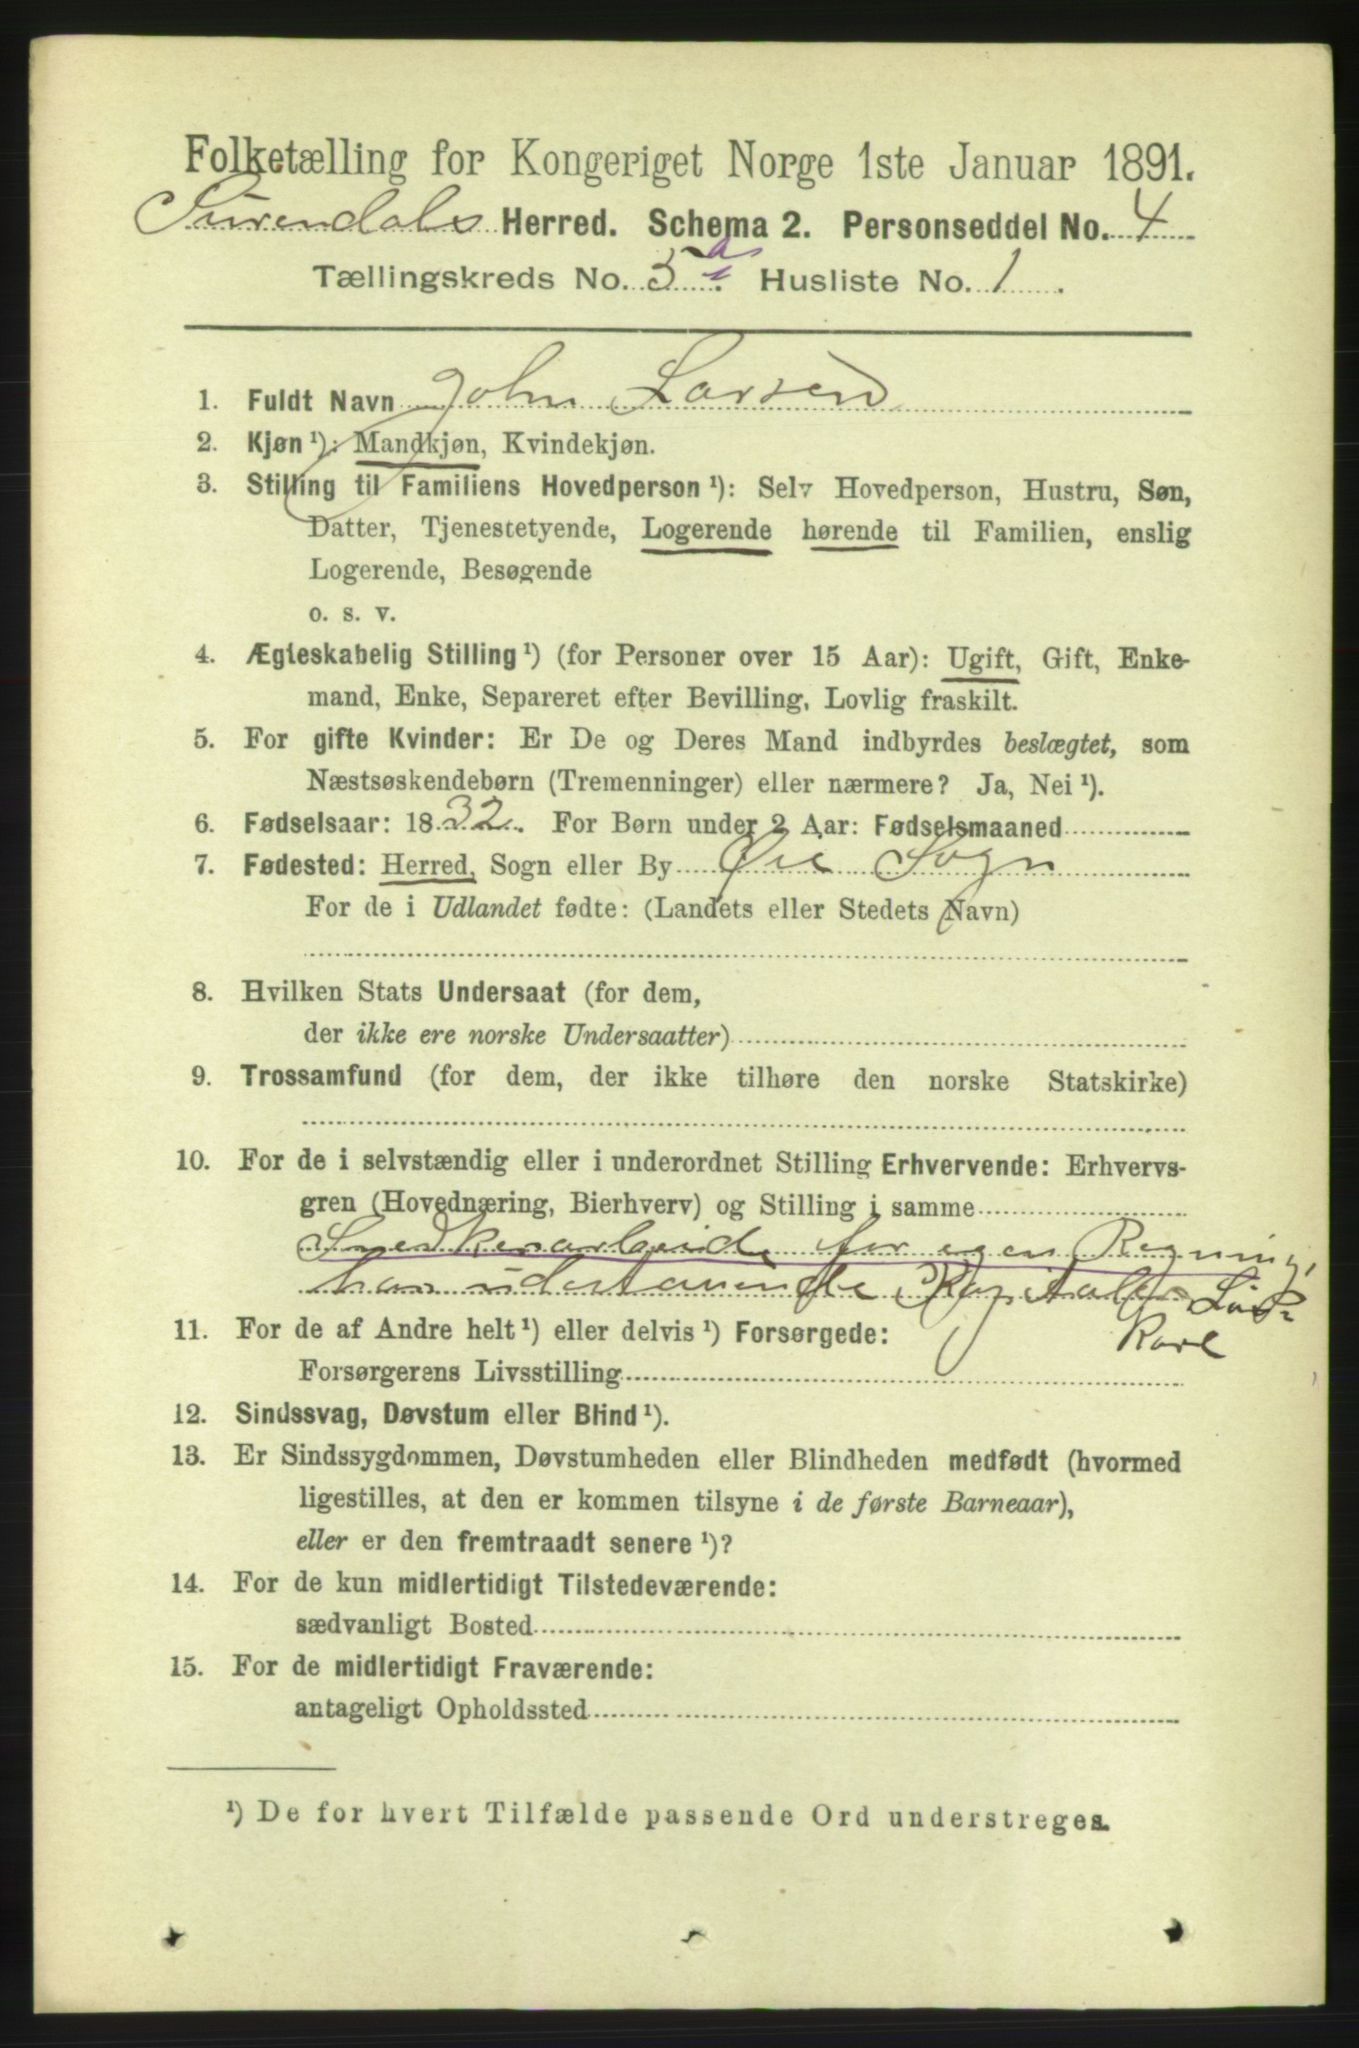 Folketælling for Kongeriget Norge 1ste Januar 1891.
Surendals Herred. Schema 2. Personseddel No. 4
Tællingskreds No. 5 a. Husliste No. 1.
1. Fuldt Navn John Larsen
2. Kjøn ¹): Mandkjøn, Kvindekjøn.
3. Stilling til Familiens Hovedperson ¹): Selv Hovedperson, Hustru, Søn,
Datter, Tjenestetyende, Logerende hørende til Familien, enslig
Logerende, Besøgende
o. s. v.
4. Ægteskabelig Stilling ¹) (for Personer over 15 Aar): Ugift, Gift, Enke-
mand, Enke, Separeret efter Bevilling, Lovlig fraskilt.
5. For gifte Kvinder: Er De og Deres Mand indbyrdes beslægtet, som
Næstsøskendebørn (Tremenninger) eller nærmere? Ja, Nei ¹).
6. Fødselsaar: 1832. For Børn under 2 Aar: Fødselsmaaned
7. Fødested: Herred, Sogn eller By Øie Sogn
For de i Udlandet fødte: (Landets eller Stedets Navn)
8. Hvilken Stats Undersaat (for dem,
der ikke ere norske Undersaatter)
9. Trossamfund (for dem, der ikke tilhøre den norske Statskirke)
10. For de i selvstændig eller i underordnet Stilling Erhvervende: Erhvervs-
gren (Hovednæring, Bierhverv) og Stilling i samme
Snedkerarbeide for egen Regning,
har udestaaende Kapitaler Løs-
Karl
11. For de af Andre helt ¹) eller delvis ¹) Forsørgede:
Forsørgerens Livsstilling
12. Sindssvag, Døvstum eller Blind ¹).
13. Er Sindssygdommen, Døvstumheden eller Blindheden medfødt (hvormed
ligestilles, at den er kommen tilsyne i de første Barneaar),
eller er den fremtraadt senere ¹)?
14. For de kun midlertidigt Tilstedeværende:
sædvanligt Bosted
15. For de midlertidigt Fraværende:
antageligt Opholdssted
¹) De for hvert Tilfælde passende Ord understreges.